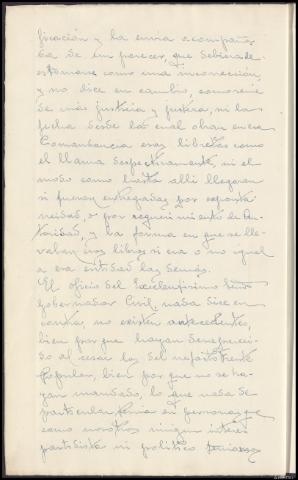 ficación y la envia acompaña
da de un parecer, que debiera de
estimarse como una incorrección,
y no dice en cambio, como seria
de más justicia y justeza, ni la
fecha desde la cual obran en esa
Comandancia esas libretas como
él llama despectivamente ni el
modo como hasta alli llegaron
si fueron entregadas por esponta
neidad, o por requerimiento de Au-
toridad, y la forma en que se lle-
vaban esos libros si era o no igual
a esa entidad las demás.
El oficio del Excelentísimo Señor
Gobernador Civil, nada dice en
contra, no existen antecedentes,
bien por que hayan desapareci-
do al cesar los del nefasto Frente
Popular, bien por que no se ha-
yan mandado, lo que nada de
particular tenia en personas que
como nosotros ningun interés
partidista ni politico teniamos